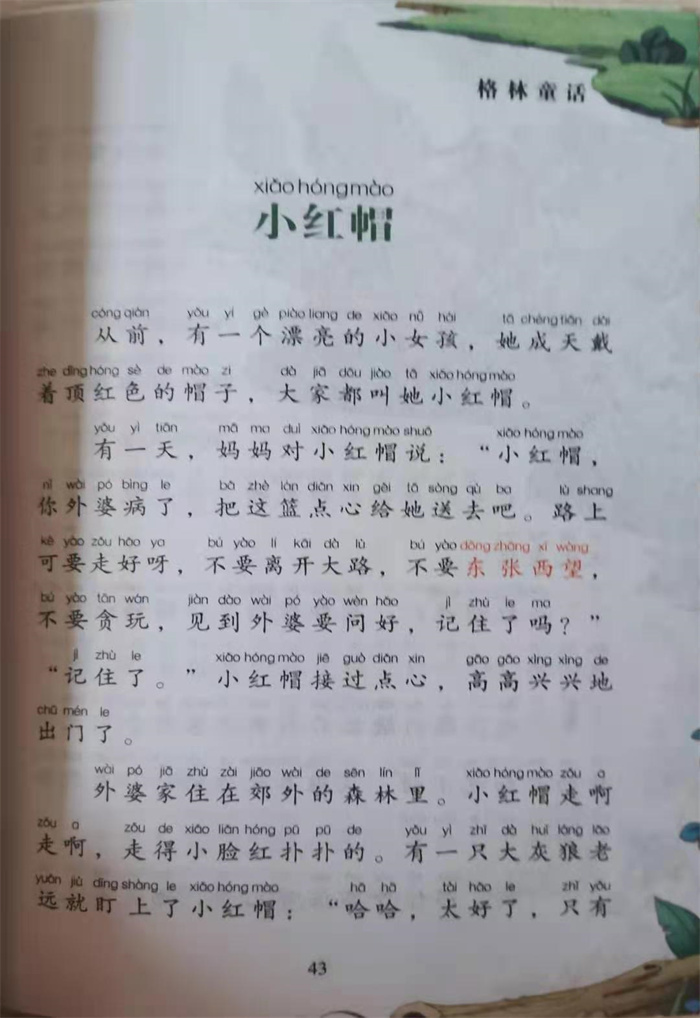 格林童话
xiǎo hóng mào
小红帽
cóng qián yǒu yí gè piào liang de xiǎo nǚ hái tā chéng tiān dài
从前，有一个漂亮的小女孩，她成天戴
zhe dǐng hóng sè de mào zi dà jiā dōu jiào tā xiǎo hóng mào
着顶红色的帽子，大家都叫她小红帽。
yǒu yì tiān mā ma duì xiǎo hóng mào shuō xiǎo hóng mào
有一天，妈妈对小红帽说：“小红帽，
nǐ wài pó bìng le bǎ zhè lán diǎn xin gěi tā sòng qù ba lù shang
你外婆病了，把这篮点心给她送去吧。路上
kě yào zǒu hǎo ya bú yào lí kāi dà lù bú yào dōng zhāng xī wàng
可要走好呀，不要离开大路，不要东张西望，
bú yào tān wán jiàn dào wài pó yào wèn hǎo jì zhù le ma
不要贪玩，见到外婆要问好，记住了吗？”
jì zhù le xiǎo hóng mào jiē guò diǎn xin gāo gāo xìng xìng de
“记住了。”小红帽接过点心，高高兴兴地
chū mén le
出门了。
wài pó jiā zhù zài jiāo wài de sēn lín lǐ xiǎo hóng mào zǒu a
外婆家住在郊外的森林里。小红帽走啊
zǒu a zǒu de xiǎo liǎn hóng pū pū de yǒu yì zhī dà huī láng lǎo
走啊，走得小脸红扑扑的。有一只大灰狼老
yuǎn jiù dīng shàng le xiǎo hóng mào hā hā tài hǎo le zhǐ yǒu
远就盯上了小红帽：“哈哈，太好了，只有
43